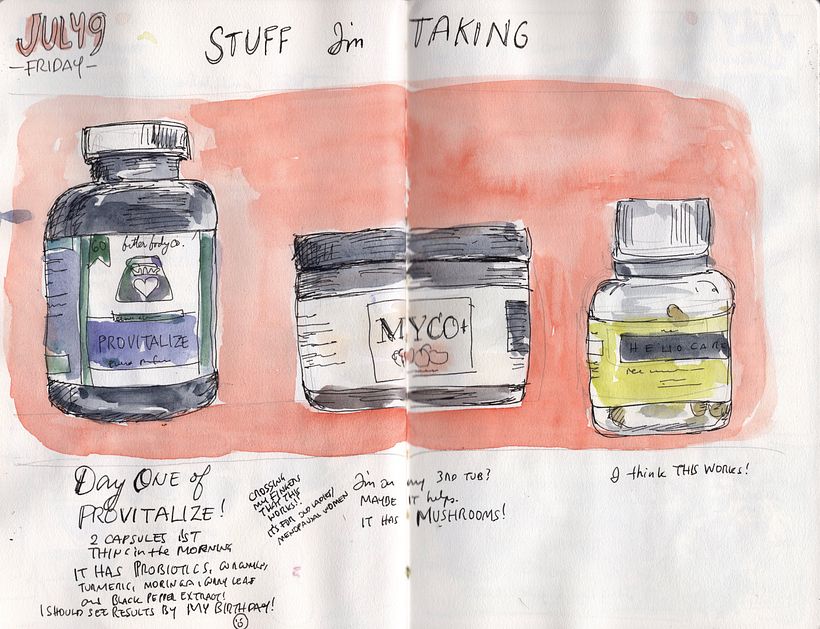 JULY 9
—FRIDAY—
STUFF I'm TAKING
60
better body co.
PROVITALIZE
MYCO+
HELIOCARE
Day ONE of
PROVITALIZE!
2 CAPSULES 1ST
THING in the MORNING
IT HAS PROBIOTICS,
TURMERIC, MORINGA, CURRY LEAF
and BLACK PEPPER EXTRACT!
I SHOULD SEE RESULTS BY MY BIRTHDAY!
CROSSING
MY FINGERS
THAT THIS
WORKS!!
IT'S FOR OLD LADIES/
MENOPAUSAL WOMEN
I'm on my 3RD TUB?
MAYBE IT helps.
IT HAS MUSHROOMS!
I think THIS WORKS!